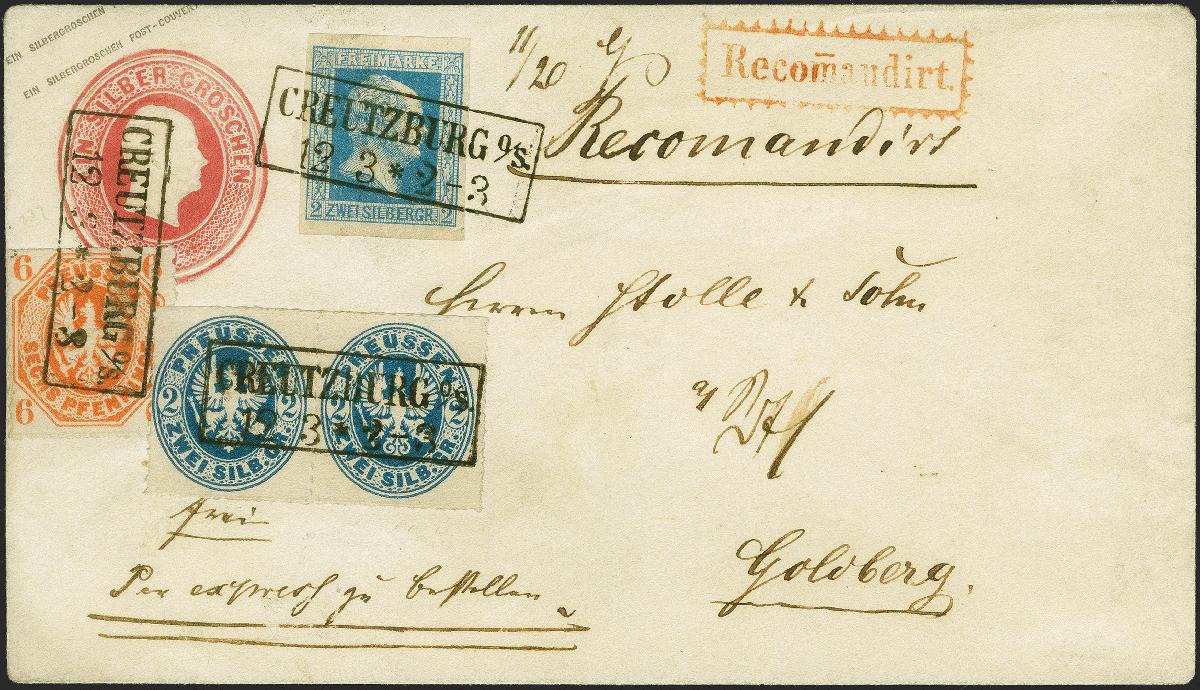 EIN SILBERGROSCHEN
EIN SILBERGROSCHEN POST-COUVERT
EIN SILBER GROSCHEN
CREUTZBURG O/S.
12 3 * 2-3
FREIMARKE
2 ZWEI SILBERGR. 2
CREUTZBURG O/S.
12 3 * 2-3
11/20
Recom̄andirt.
Recomandirt
Herrn Stolle & Sohn
6 PREUSSEN 6
6 SECHS PFENNINGE 6
PREUSSEN
2 2
ZWEI SILB. GR.
PREUSSEN
2 2
ZWEI SILB. GR.
CREUTZBURG O/S.
12 3 * 2-3
frei
Per express zu bestellen
Goldberg.